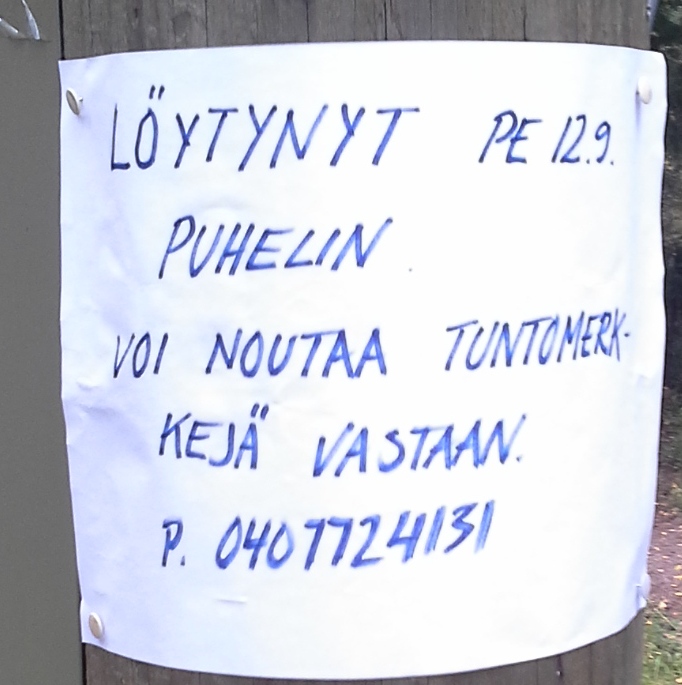 LÖYTYNYT PE 12.9.
PUHELIN
VOI NOUTAA TUNTOMERK-
KEJÄ VASTAAN.
P. 0407724131